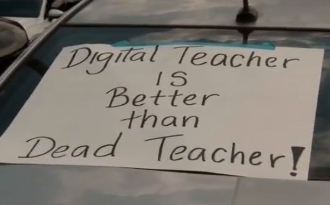 Digital Teacher
IS
Better
than
Dead Teacher!